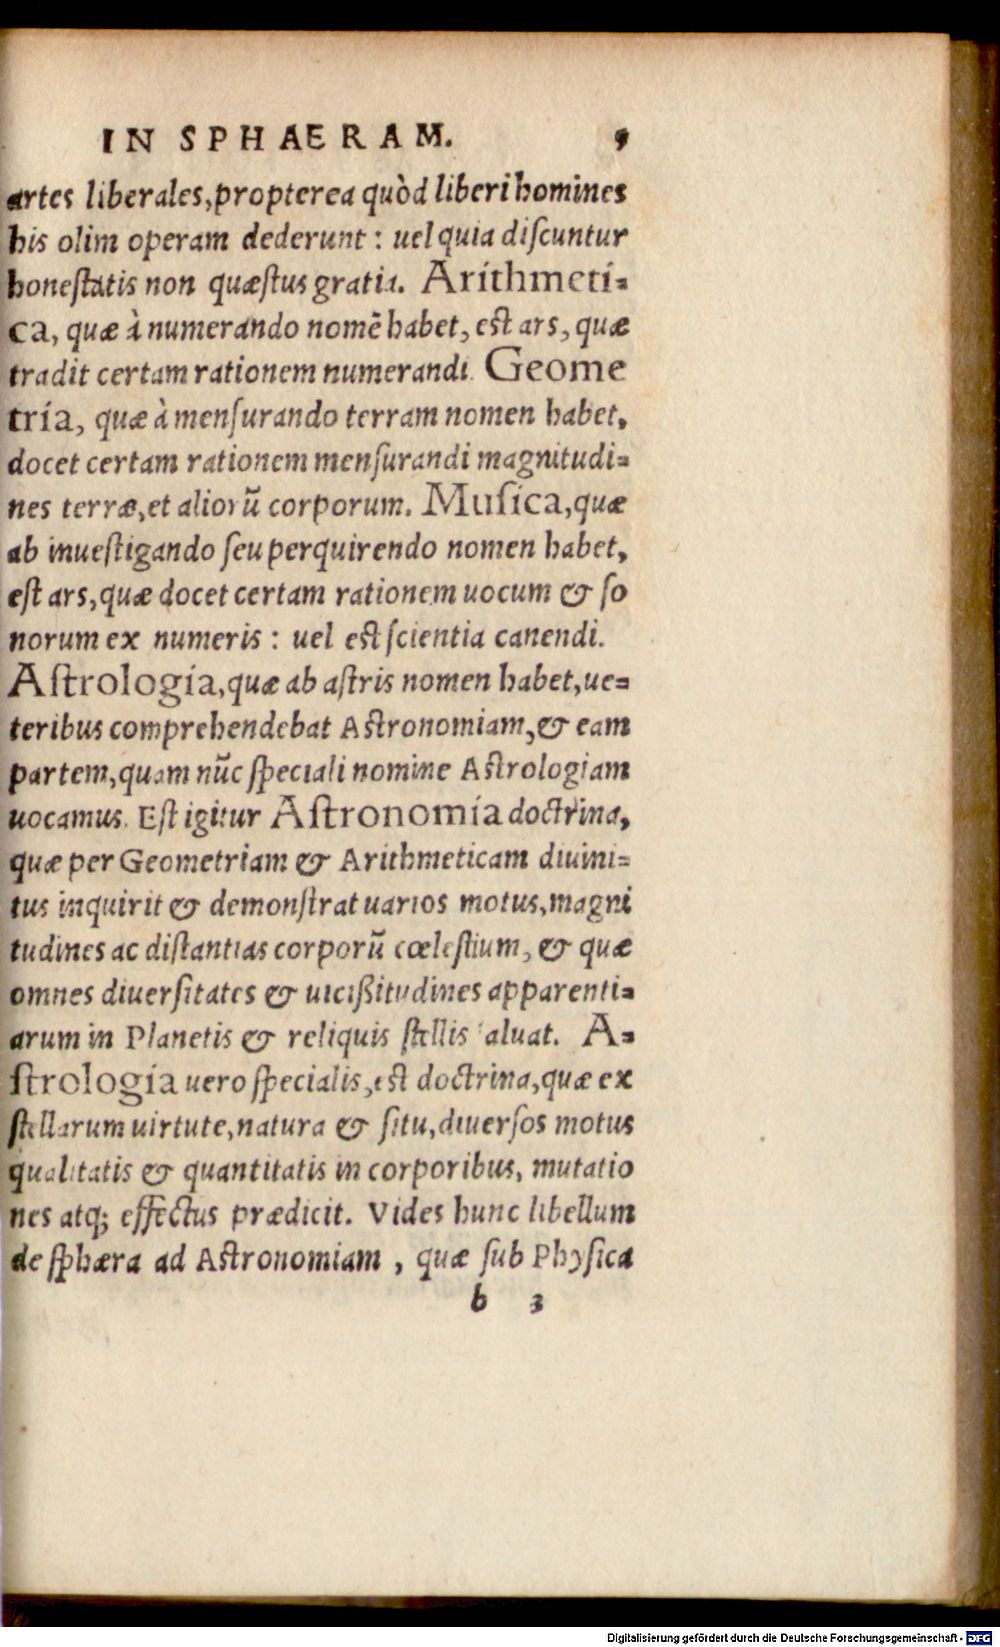 IN SPHAERAM. 9
artes liberales, propterea quòd liberi homines
his olim operam dederunt: uel quia diſcuntur
honeſtatis non quæſtus gratia. Arithmeti-
ca, quæ à numerando nomē habet, eſt ars, quæ
tradit certam rationem numerandi. Geome
tria, quæ à menſurando terram nomen habet,
docet certam rationem menſurandi magnitudi-
nes terræ, et aliorū corporum. Muſica, quæ
ab inueſtigando ſeu perquirendo nomen habet,
eſt ars, quæ docet certam rationem uocum & ſo
norum ex numeris: uel eſt ſcientia canendi.
Aſtrologia, quæ ab aſtris nomen habet, ue-
teribus comprehendebat Aſtronomiam, & eam
partem, quam nūc ſpeciali nomine Aſtrologiam
uocamus. Eſt igitur Aſtronomia doctrina,
quæ per Geometriam & Arithmeticam diuini-
tus inquirit & demonſtrat uarios motus, magni
tudines ac diſtantias corporū cœleſtium, & quæ
omnes diuerſitates & uicißitudines apparenti-
arum in Planetis & reliquis ſtellis aluat. A-
ſtrologia uero ſpecialis, eſt doctrina, quæ ex
ſtellarum uirtute, natura & ſitu, diuerſos motus
qualitatis & quantitatis in corporibus, mutatio
nes atq; effectus prædicit. Vides hunc libellum
de ſphæra ad Aſtronomiam, quæ ſub Phyſica
b 3
Digitalisierung gefördert durch die Deutsche Forschungsgemeinschaft - DFG